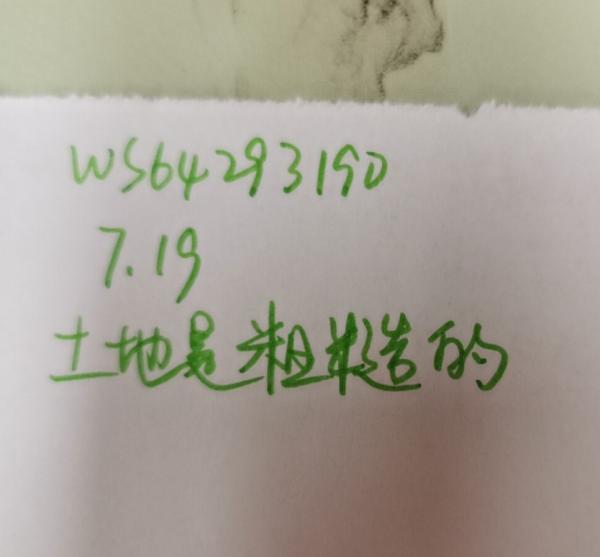 WS64293190
7.19
土地是粗糙的